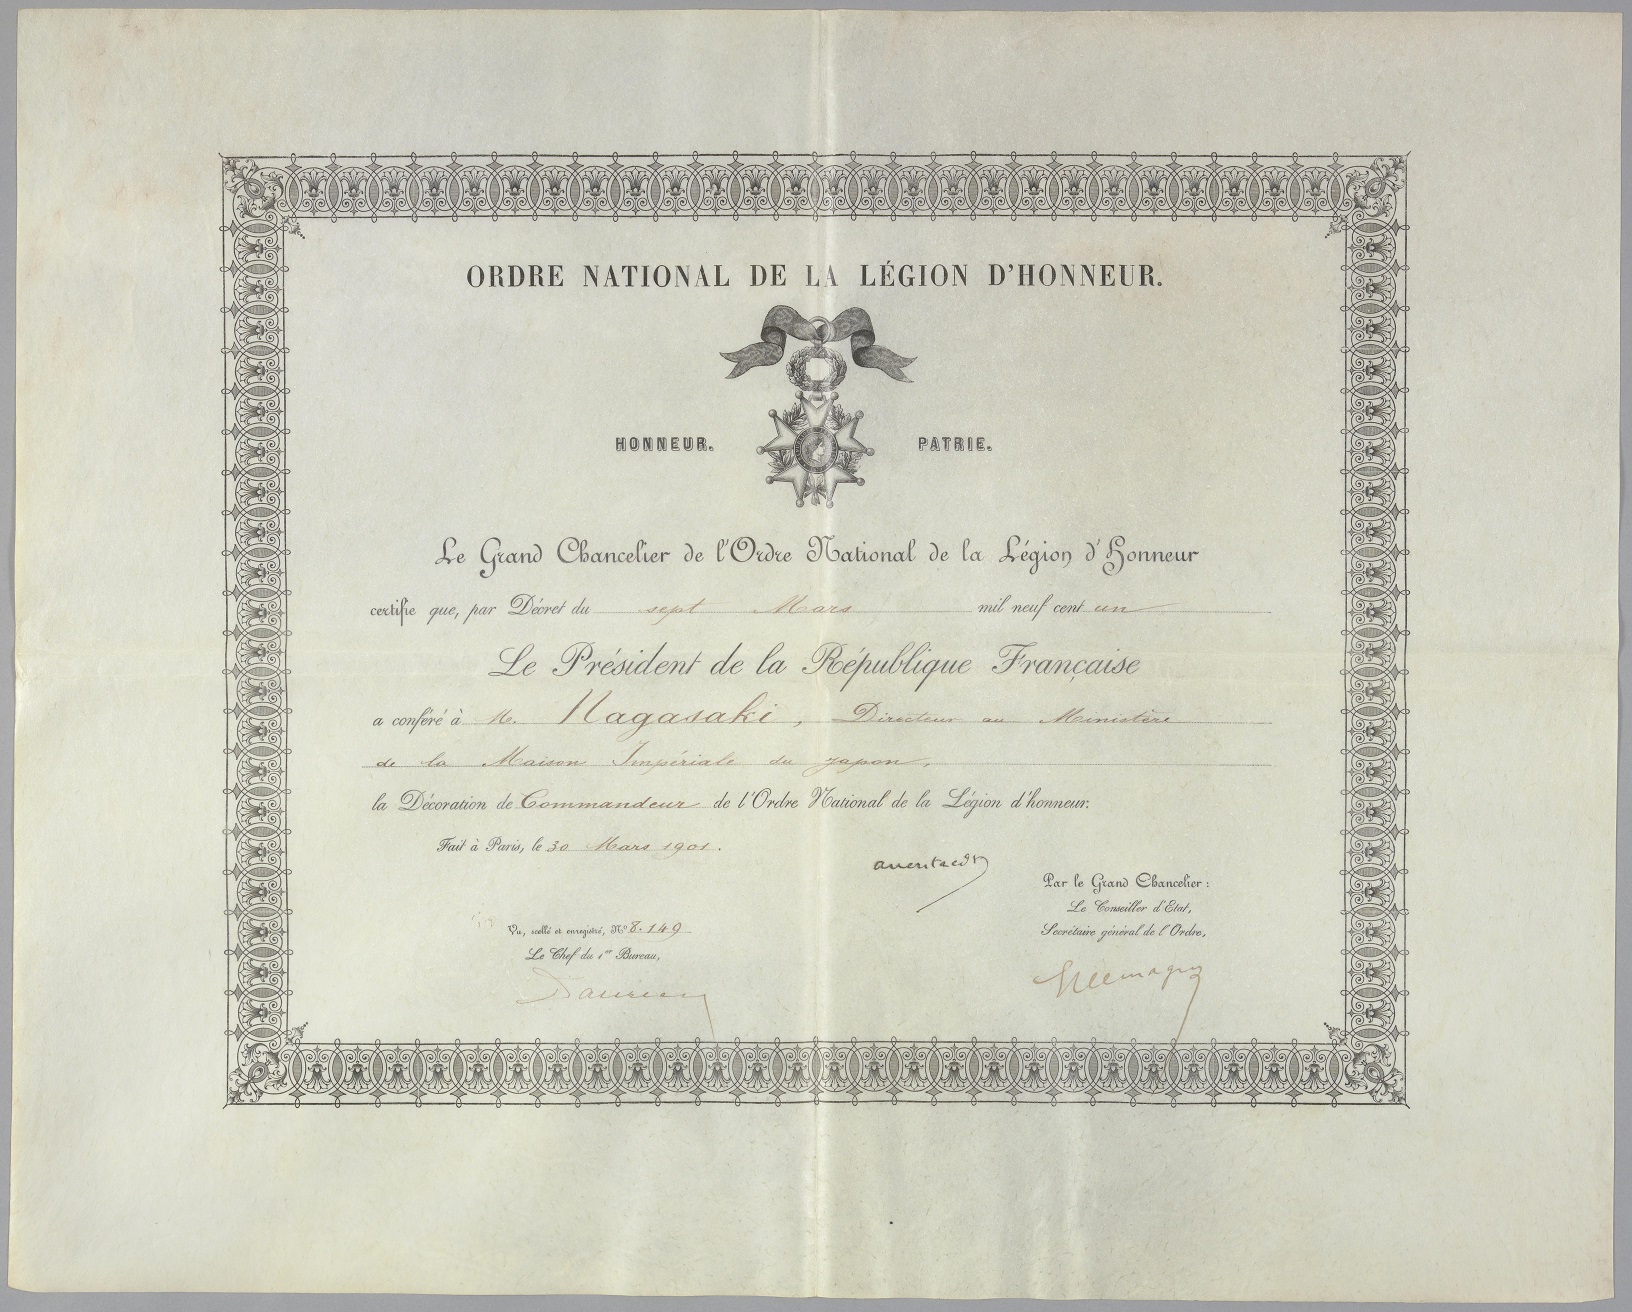 ORDRE NATIONAL DE LA LÉGION D'HONNEUR.
HONNEUR. PATRIE.
Le Grand Chancelier de l'Ordre National de la Légion d'Honneur
certifie que, par Décret du sept Mars mil neuf cent un
Le Président de la République Française
a conféré à M. Nagasaki, Directeur au Ministère
de la Maison Impériale du Japon,
la Décoration de Commandeur de l'Ordre National de la Légion d'honneur.
Fait à Paris, le 30 Mars 1901.
Par le Grand Chancelier:
Le Conseiller d'Etat,
Secrétaire général de l'Ordre,
Vu, scellé et enregistré, N° 8.149
Le Chef du 1er Bureau,